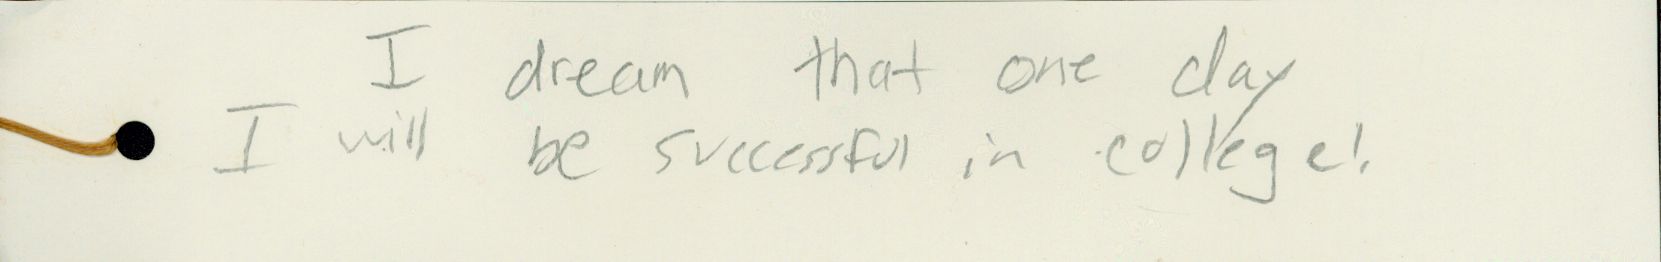 I dream that one day
I will be successful in college!